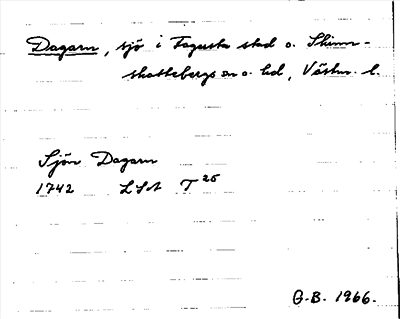 Dagarn, sjö i Fagersta stad o. Skinn-
skattebergs sn o. hd, Västm. l.
Sjön Dagarn
1742 LSA T 25
G.B. 1966.